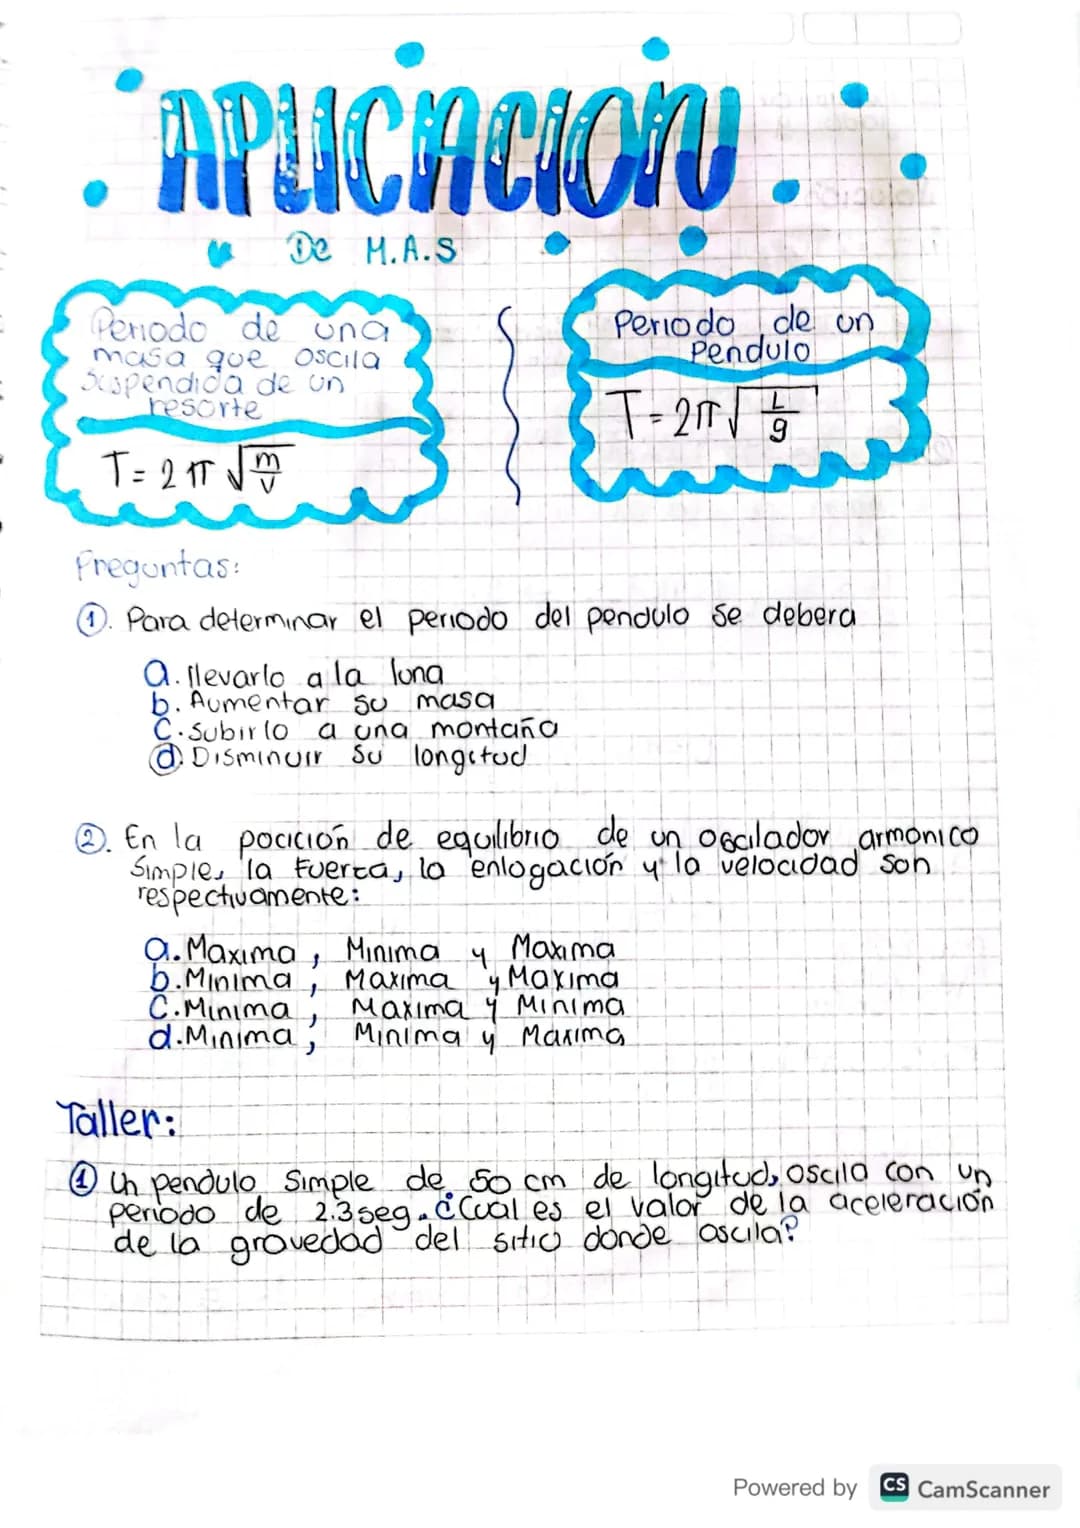 APLICACION
De M.A.S
Periodo de una
masa que oscila
suspendida de un
resorte
T = 2 π √m/v
Periodo de un
Pendulo
T = 2π √L/g
Preguntas:
1. Para determinar el periodo del pendulo se debera
a. llevarlo a la luna
b. Aumentar su masa
C. Subirlo a una montaña
d. Disminuir su longitud
2. En la pocición de equilibrio de un oscilador armonico
Simple, la fuerza, la enlogación y la velocidad son
respectivamente:
a. Maxima, Minima y Maxima
b. Minima, Maxima y Maxima
C. Minima, Maxima y Minima
d. Minima, Minima y Maxima
Taller:
1 Un pendulo Simple de 50 cm de longitud, oscila con un
periodo de 2.3 seg. ¿Cual es el valor de la aceleración
de la gravedad del sitio donde oscila?
Powered by CS CamScanner